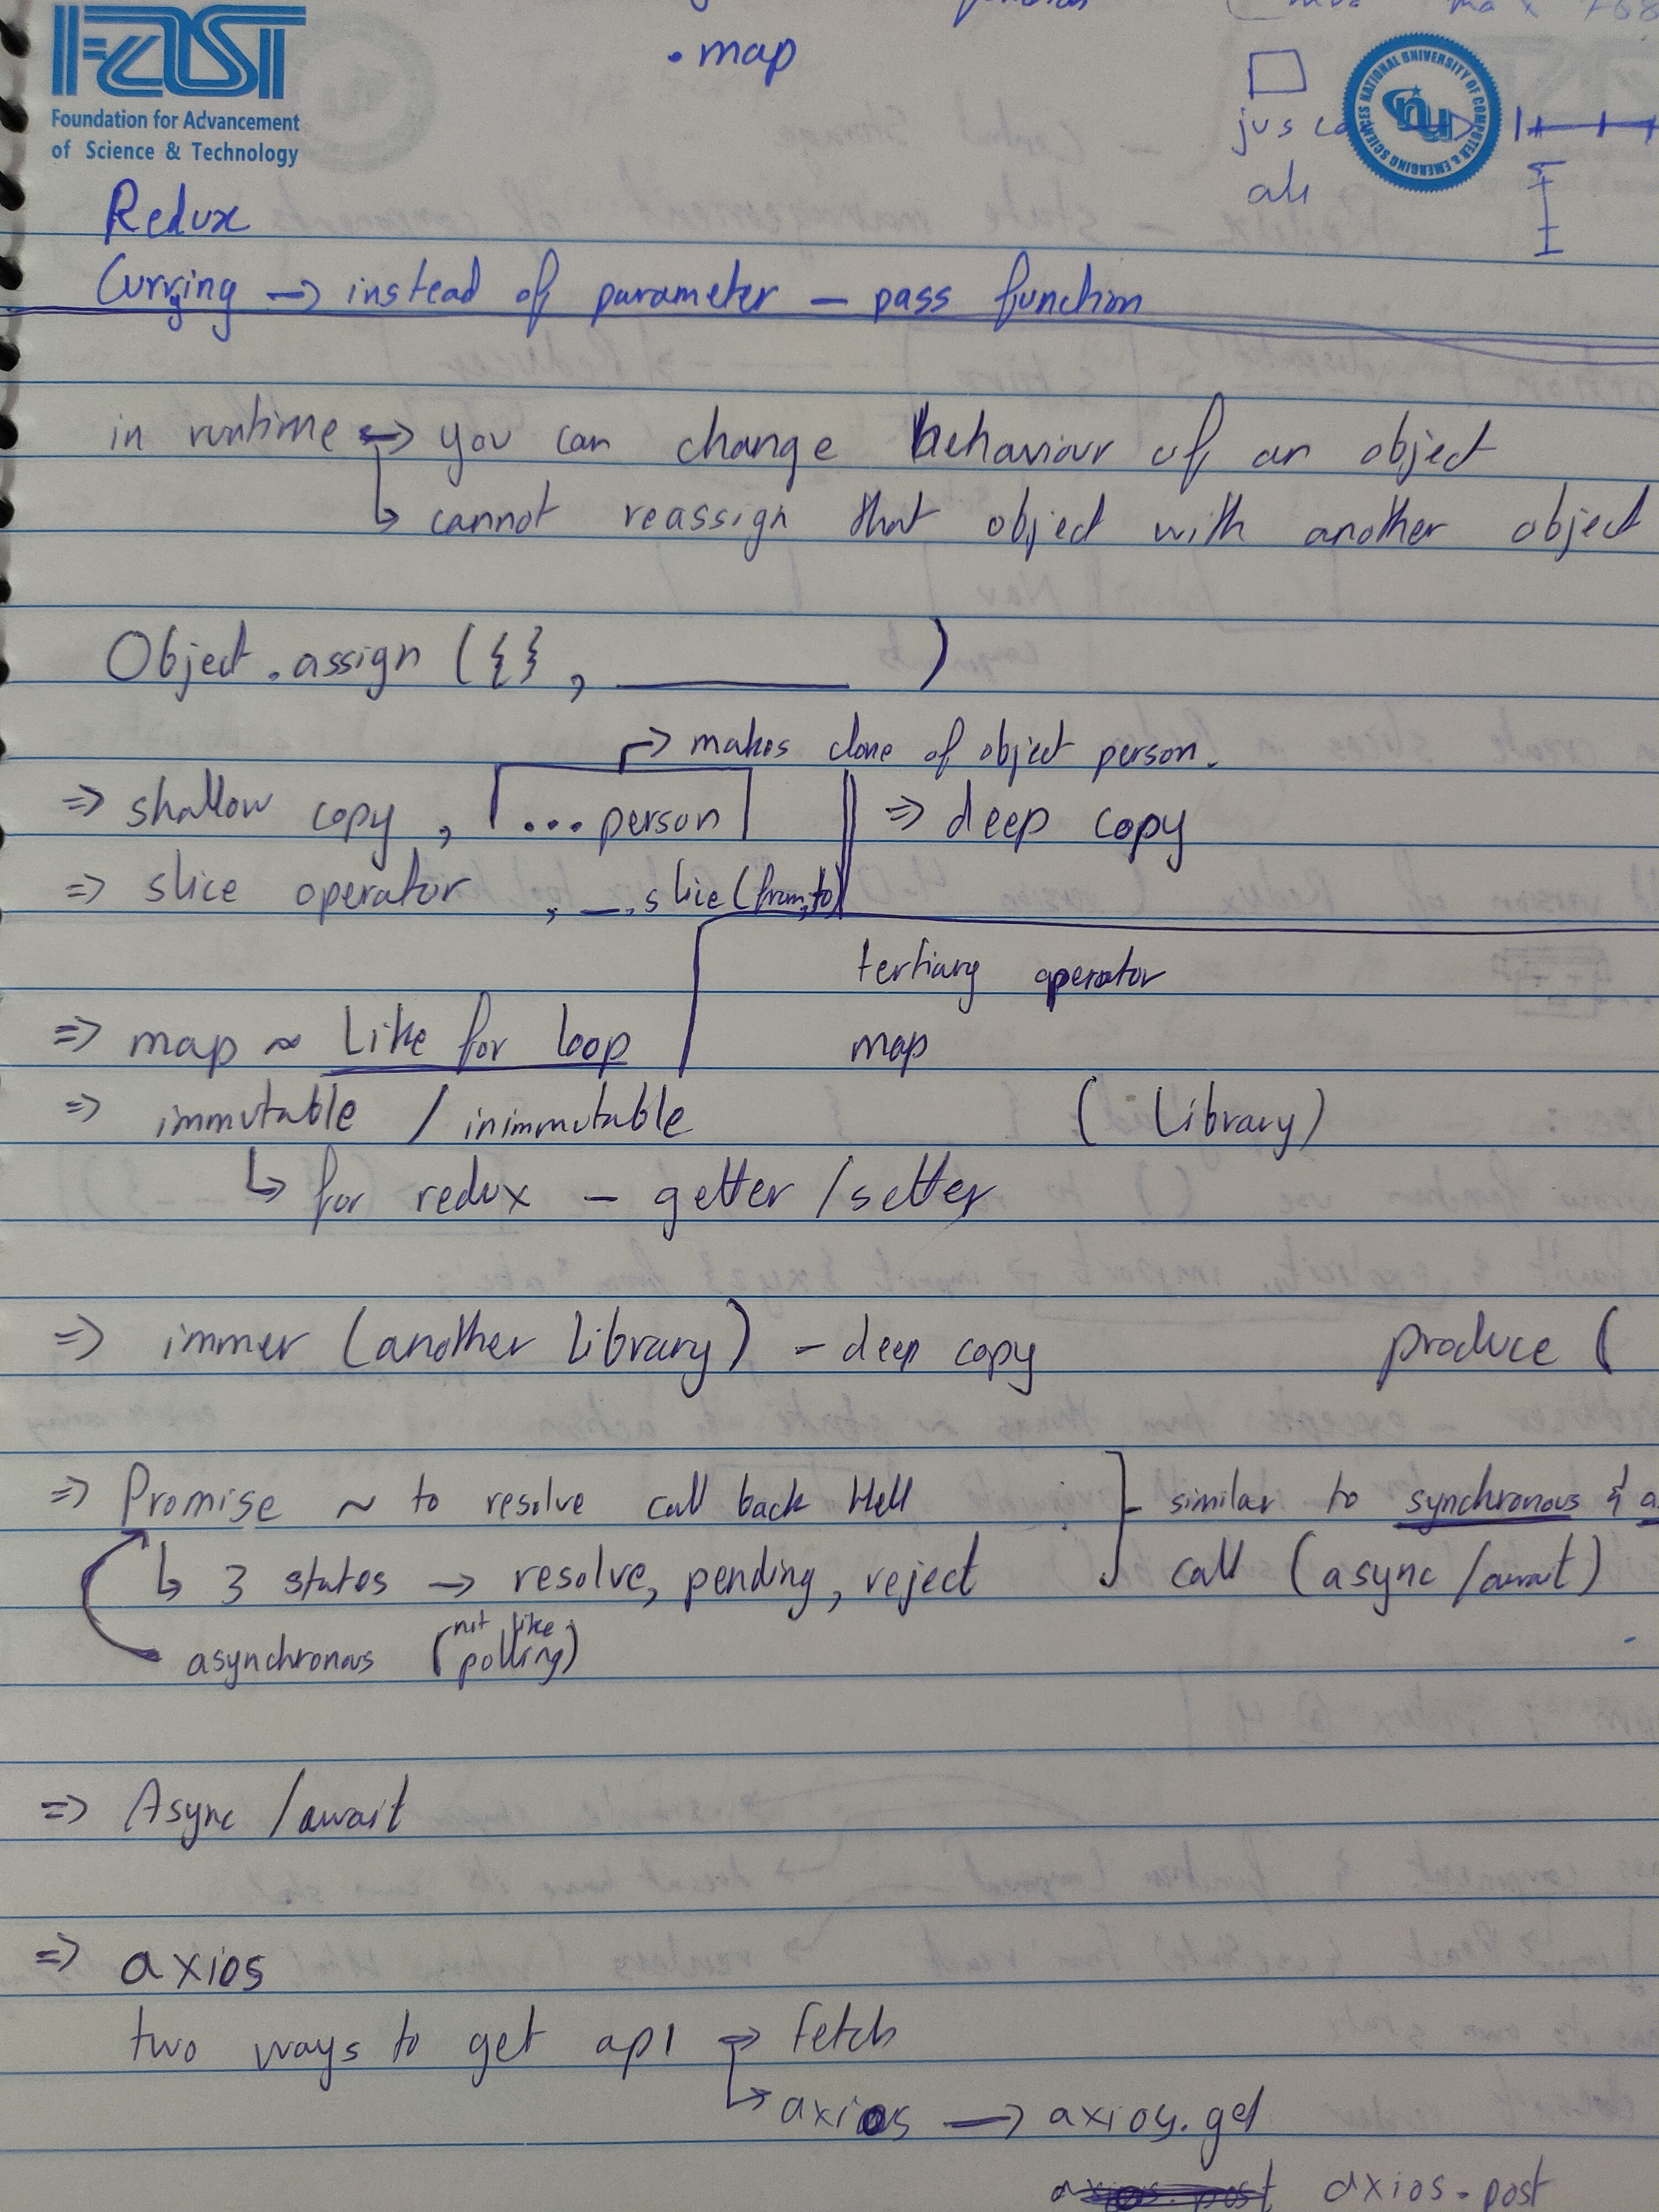 function
max 768
. map
FAST
Foundation for Advancement
of Science & Technology
NATIONAL UNIVERSITY OF COMPUTER & EMERGING SCIENCES
nu
Redux
Currying → instead of parameter – pass function
in runtime → you can change behaviour of an object
↳ cannot reassign that object with another object
Object.assign ({}, ________ )
→ makes clone of object person.
⇒ shallow copy , ...person ⇒ deep copy
⇒ slice operator , _.slice(from,to)
tertiary operator
⇒ map ~ Like for loop map
⇒ immutable / inimmutable ( Library)
↳ for redux – getter / setter
⇒ immer (another library) – deep copy produce (
⇒ Promise ~ to resolve call back Hell similar to synchronous & a
↳ 3 states → resolve, pending, reject call (async /await)
asynchronous (not like polling)
⇒ Async /await
⇒ axios
two ways to get api → fetch
↳ axios → axios.get
axios.post axios.post